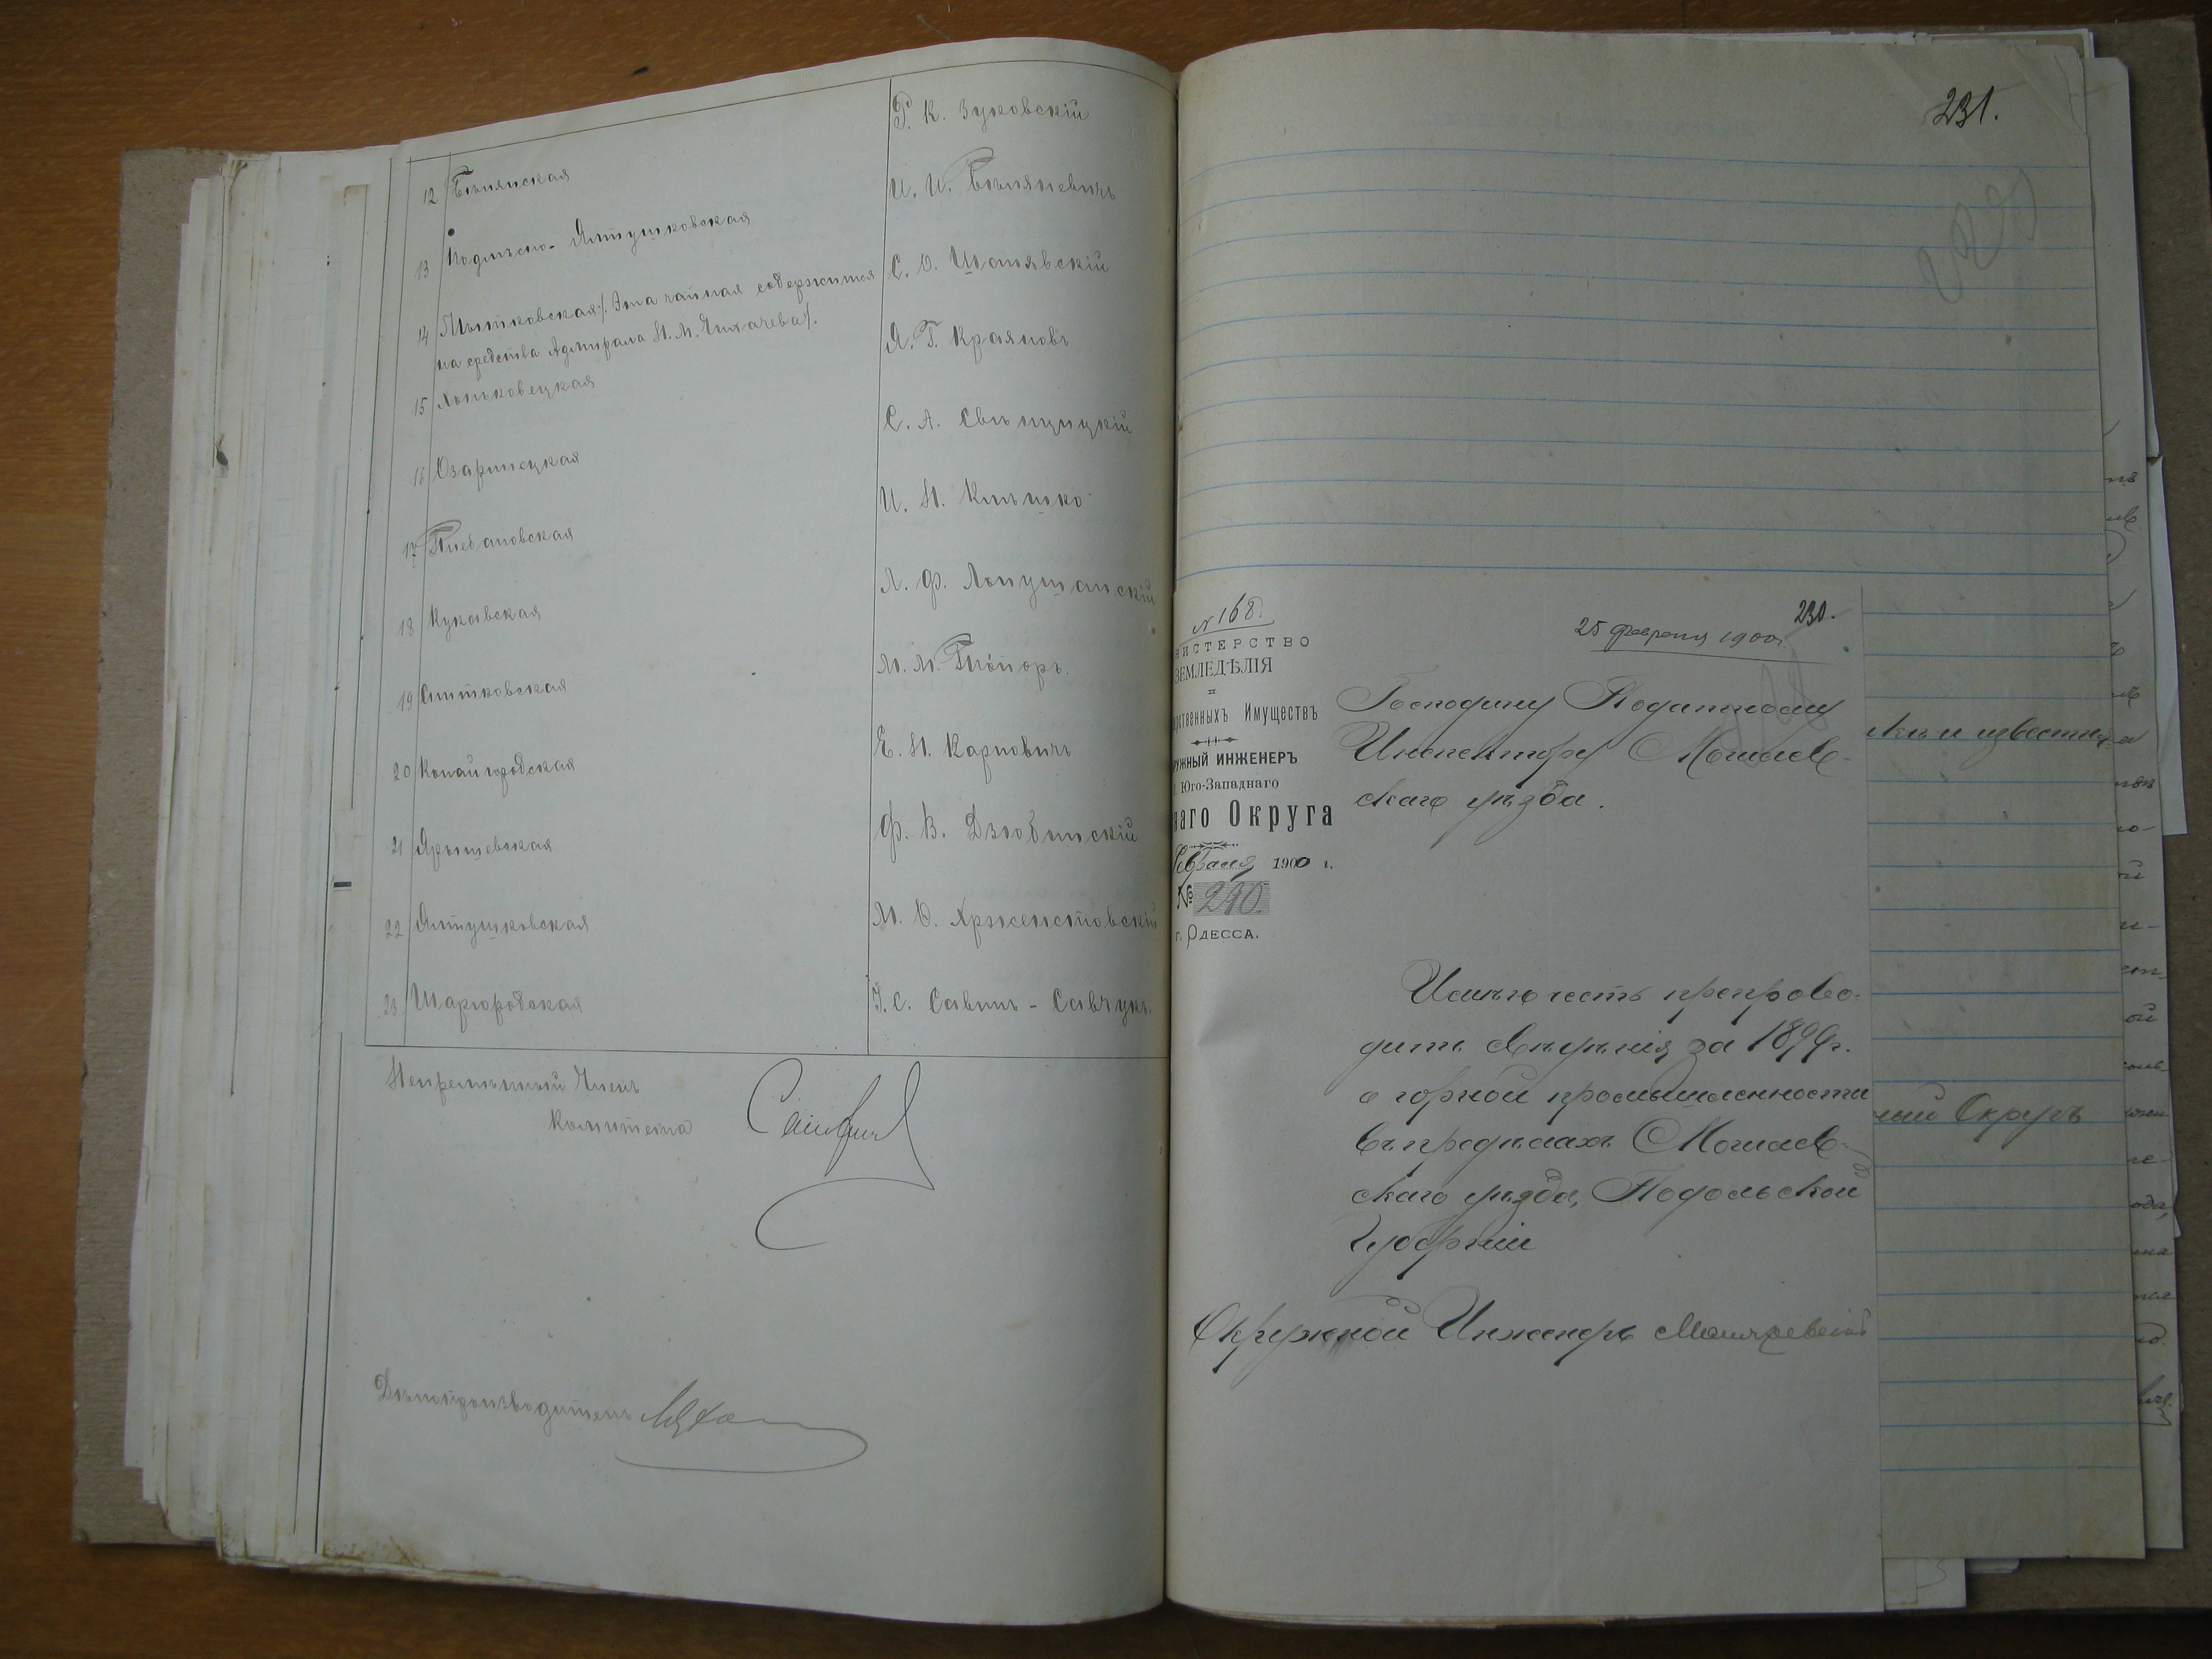 Р. К. Зуковскій
12 Бѣлянская
И. И. Бѣляневичъ
13 Подлѣсно-Ялтушковская
С. О. Шанявскій
14 Плытковская /. Эта чайная содержится
на средства Адмирала Н. М. Чихачева /.
Я. Г. Краяновъ
15 Лоньковецкая
С. А. Свѣнцицкій
16 Озаринецкая
И. Н. Клѣшко
17 Плебановская
Л. Ф. Лопушанскій
18 Кукавская
М. М. Топоръ.
19 Снитковская
Е. Н. Карповичъ
20 Копайгородская
Ф. В. Дзюбинскій
21 Ярышевская
М. О. Хрженстовскій
22 Ялтушковская
І. С. Савинъ-Савчукъ.
23 Шаргородская
Непремѣнный Членъ
Комитета
Дѣлопроизводитель
231.
230.
№ 168.
25 февраля 1900 г.
НИСТЕРСТВО
ЗЕМЛЕДѢЛІЯ
дарственныхъ Имуществъ
РУЖНЫЙ ИНЖЕНЕРЪ
Юго-Западнаго
наго Округа
Февраля 1900 г.
№ 290.
г. ОДЕССА.
Господину Податному
Инспектору Могилев-
скаго уѣзда.
Имѣю честь препрово-
дить свѣдѣнія за 1899 г.
о горной промышленности
въ предѣлахъ Могилев-
скаго уѣзда, Подольской
Губерніи
Окружной Инженеръ
ки и известня
ный Округъ